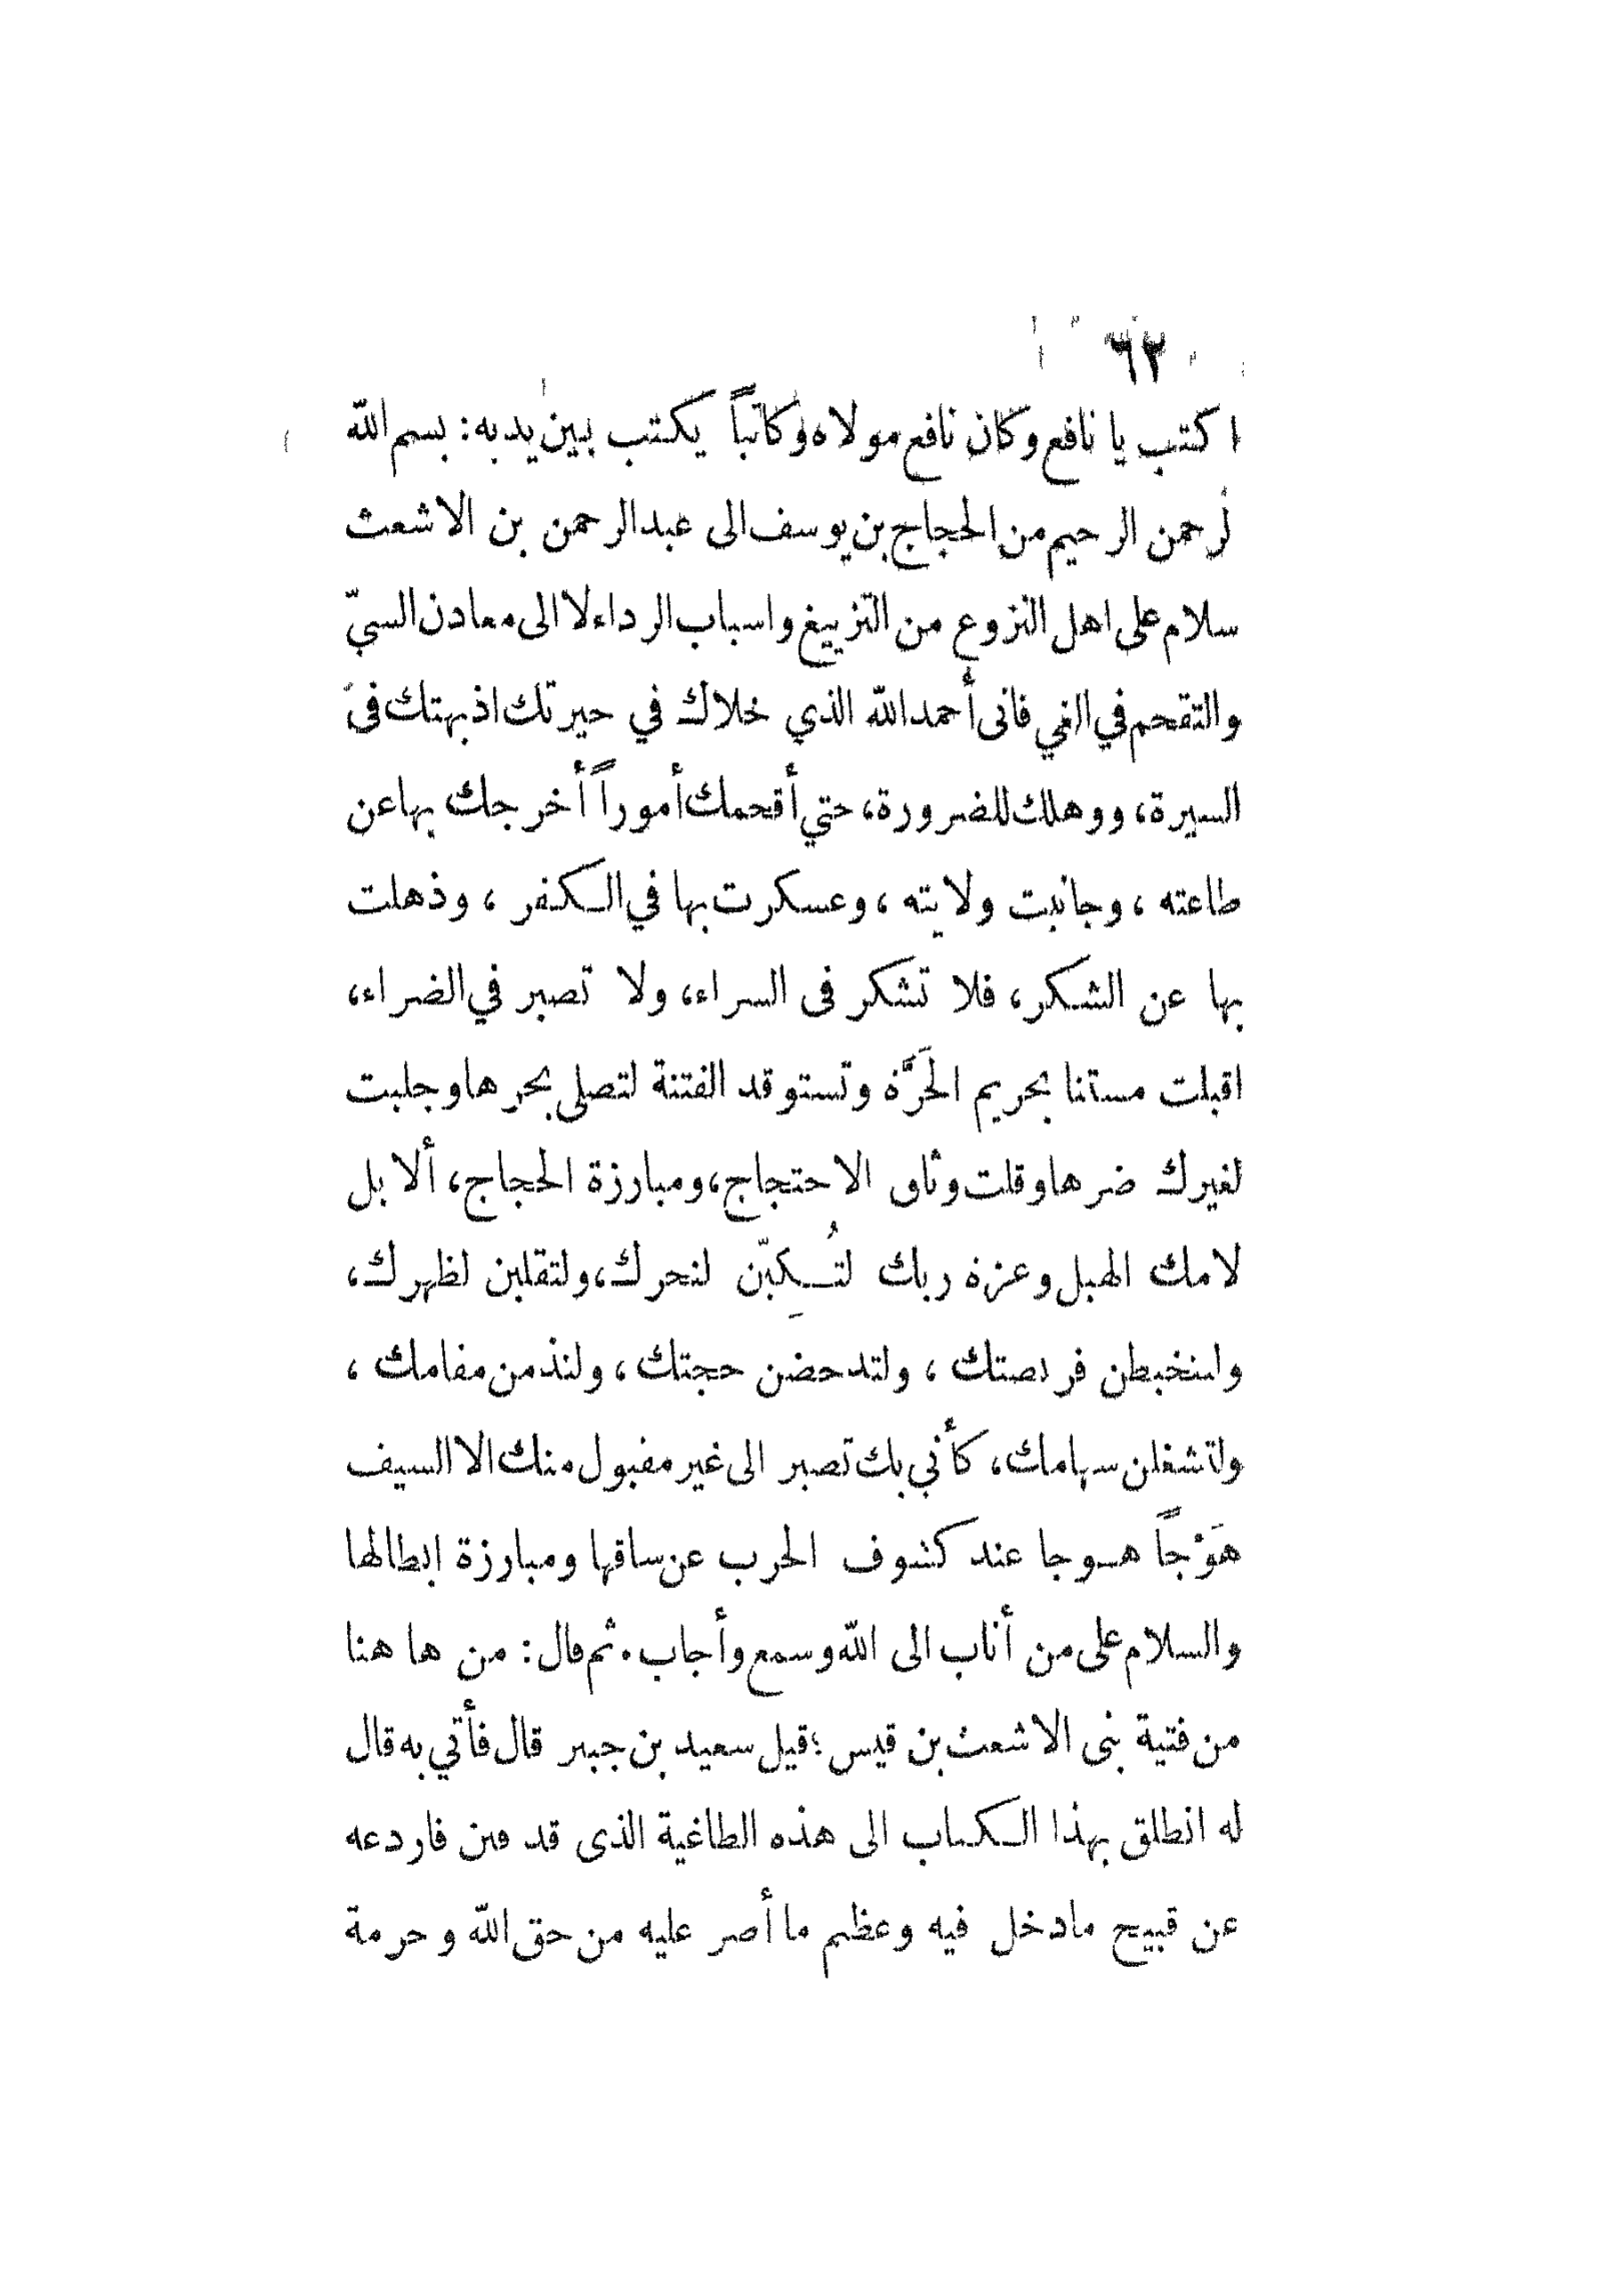 ٦٢
اكتب يا نافع وكان نافع مولاه وكاتباً يكتب بين يديه: بسم الله
الرحمن الرحيم من الحجاج بن يوسف الى عبد الرحمن بن الاشعث
سلام على اهل النزوع من التزييغ واسباب الرداء لا الى معادن السيّ
والتقحم في الغي فانى أحمد الله الذي خلاك في حيرتك اذ بهتك فى
السيرة، ووهلك للضرورة، حتي أقحمك أموراً أخرجك بها عن
طاعته، وجانبت ولايته، وعسكرت بها في الكفر، وذهلت
بها عن الشكر، فلا تشكر فى السراء، ولا تصبر في الضراء،
اقبلت مستنا بحريم الحَرَّة وتستوقد الفتنة لتصلى بحرها وجلبت
لغيرك ضرها وقلت وثاق الاحتجاج، ومبارزة الحجاج، ألا بل
لامك الهبل وعزة ربك لتُكِبّن لنحرك، ولتقلبن لظهرك،
ولتتخبطن فريصتك، ولتدحضن حجتك، ولتذمن مقامك،
ولتشغلن سهامك، كأني بك تصبر الى غير مقبول منك الا السيف
هَوْجاً هوجا عند كشوف الحرب عن ساقها ومبارزة ابطالها
والسلام على من أناب الى الله وسمع وأجاب. ثم قال: من ها هنا
من فتية بنى الاشعث بن قيس؛ قيل سعيد بن جبير قال فأتي به قال
له انطلق بهذا الكتاب الى هذه الطاغية الذى قد فتن فاردعه
عن قبيح ما دخل فيه وعظيم ما أصر عليه من حق الله و حرمة